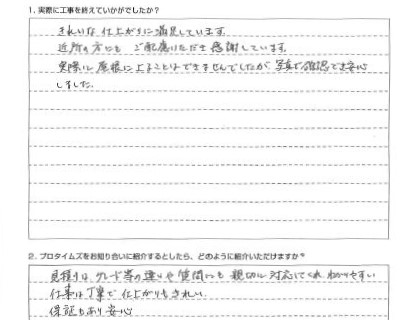 1. 実際に工事を終えていかがでしたか?
きれいな仕上がりに満足しています。
近所の方にも ご配慮いただき感謝しています。
実際に屋根に上ることはできませんでしたが、写真で確認でき安心
しました。
2. プロタイムズをお知り合いに紹介するとしたら、どのように紹介いただけますか?
見積りは、グレード等の違いや質問にも 親切に対応してくれ、わかりやすい
仕事は丁寧で仕上がりもきれい。
保証もあり安心